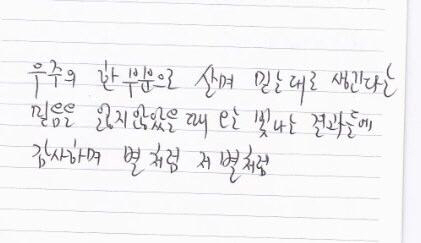 우주의 한 부분으로 살며 믿는대로 생긴다는
믿음을 잃지않았을 때 오는 빛나는 결과들에
감사하며 별 처럼 저 별처럼